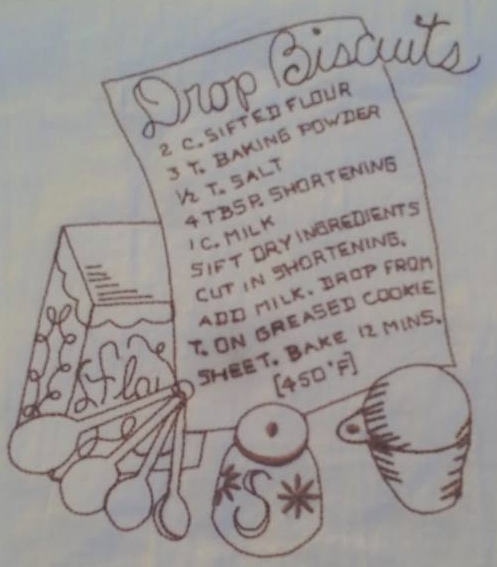 Drop Biscuits
2 C. SIFTED FLOUR
3 T. BAKING POWDER
½ T. SALT
4 TBSP. SHORTENING
1 C. MILK
SIFT DRY INGREDIENTS
CUT IN SHORTENING.
ADD MILK. DROP FROM
T. ON GREASED COOKIE
SHEET. BAKE 12 MINS.
[450°F]
Flou
S